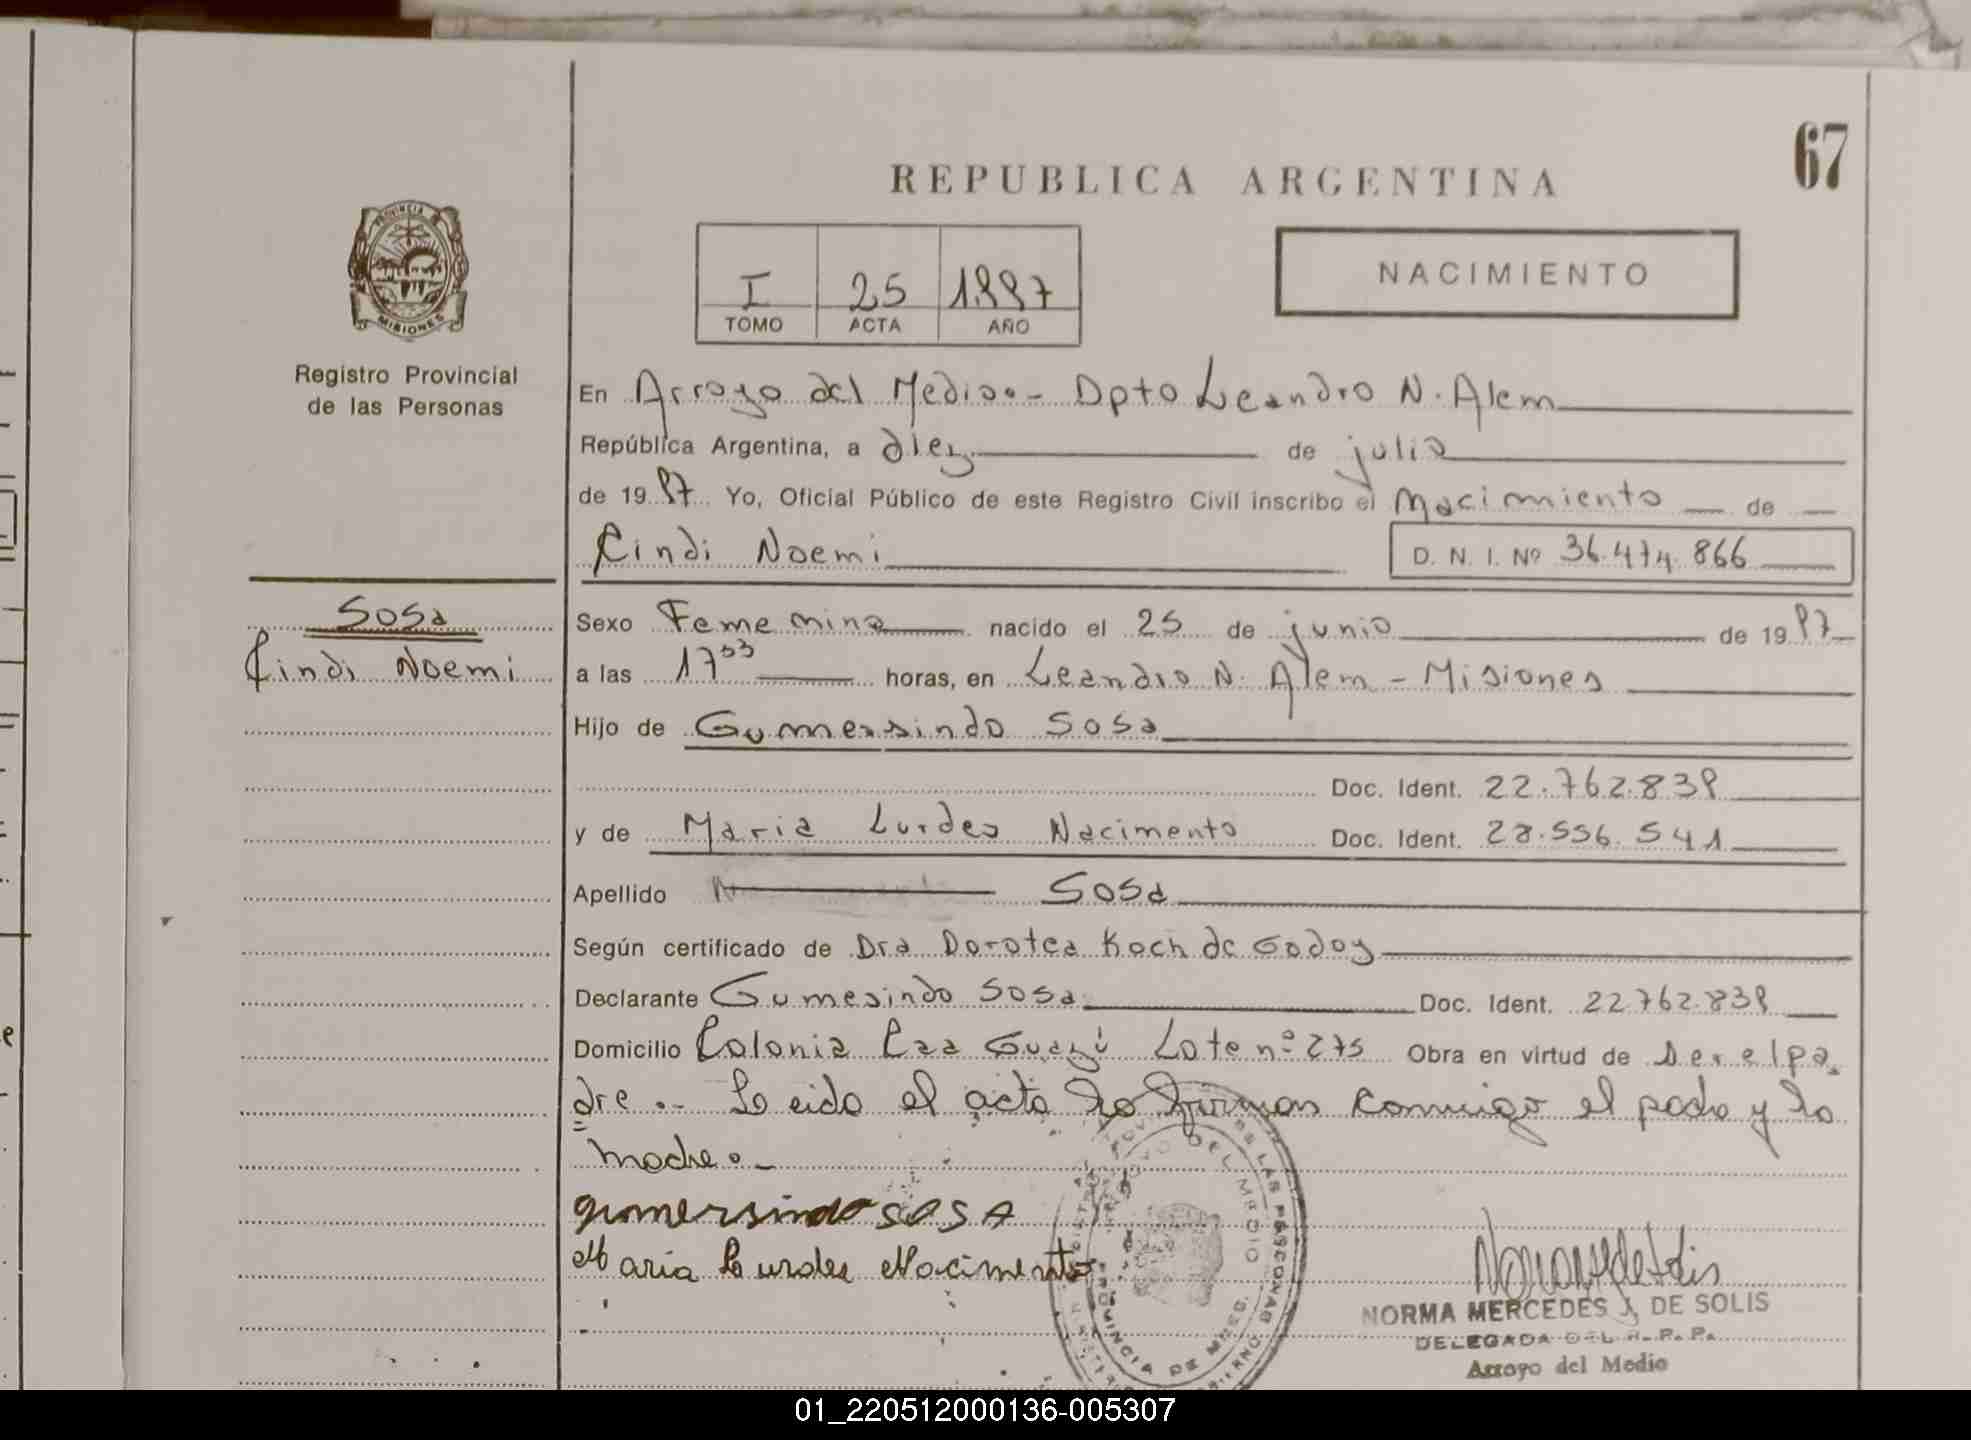 67
REPUBLICA ARGENTINA
PROVINCIA DE
MISIONES
I 25 1997
TOMO ACTA AÑO
NACIMIENTO
Registro Provincial
de las Personas
En Arroyo del Medio.- Dpto Leandro N. Alem
República Argentina, a diez de julio
de 1997 Yo, Oficial Público de este Registro Civil inscribo el Nacimiento de
Cindi Noemi D. N. I. Nº 36.474.866
Sosa
Cindi Noemi
Sexo Femenino nacido el 25 de junio de 1997
a las 17 33 horas, en Leandro N. Alem - Misiones
Hijo de Gumersindo Sosa
Doc. Ident. 22.762.839
y de Maria Lurdes Nacimento Doc. Ident. 28.556.541
Apellido Sosa
Según certificado de Dra Dorotea Koch de Godoy
Declarante Gumesindo Sosa Doc. Ident. 22.762.839
Domicilio Colonia Caa Guazú Lote nº 275 Obra en virtud de Ser el pa
dre.- Leido el acta la firman conmigo el padre y la
madre.-
gumersindo SOSA
Maria Lurdes Nacimento
ARROYO DEL MEDIO
PROVINCIA DE MNES.
NORMA MERCEDES J. DE SOLIS
DELEGADA DEL R. P. P.
Arroyo del Medio
01_220512000136-005307